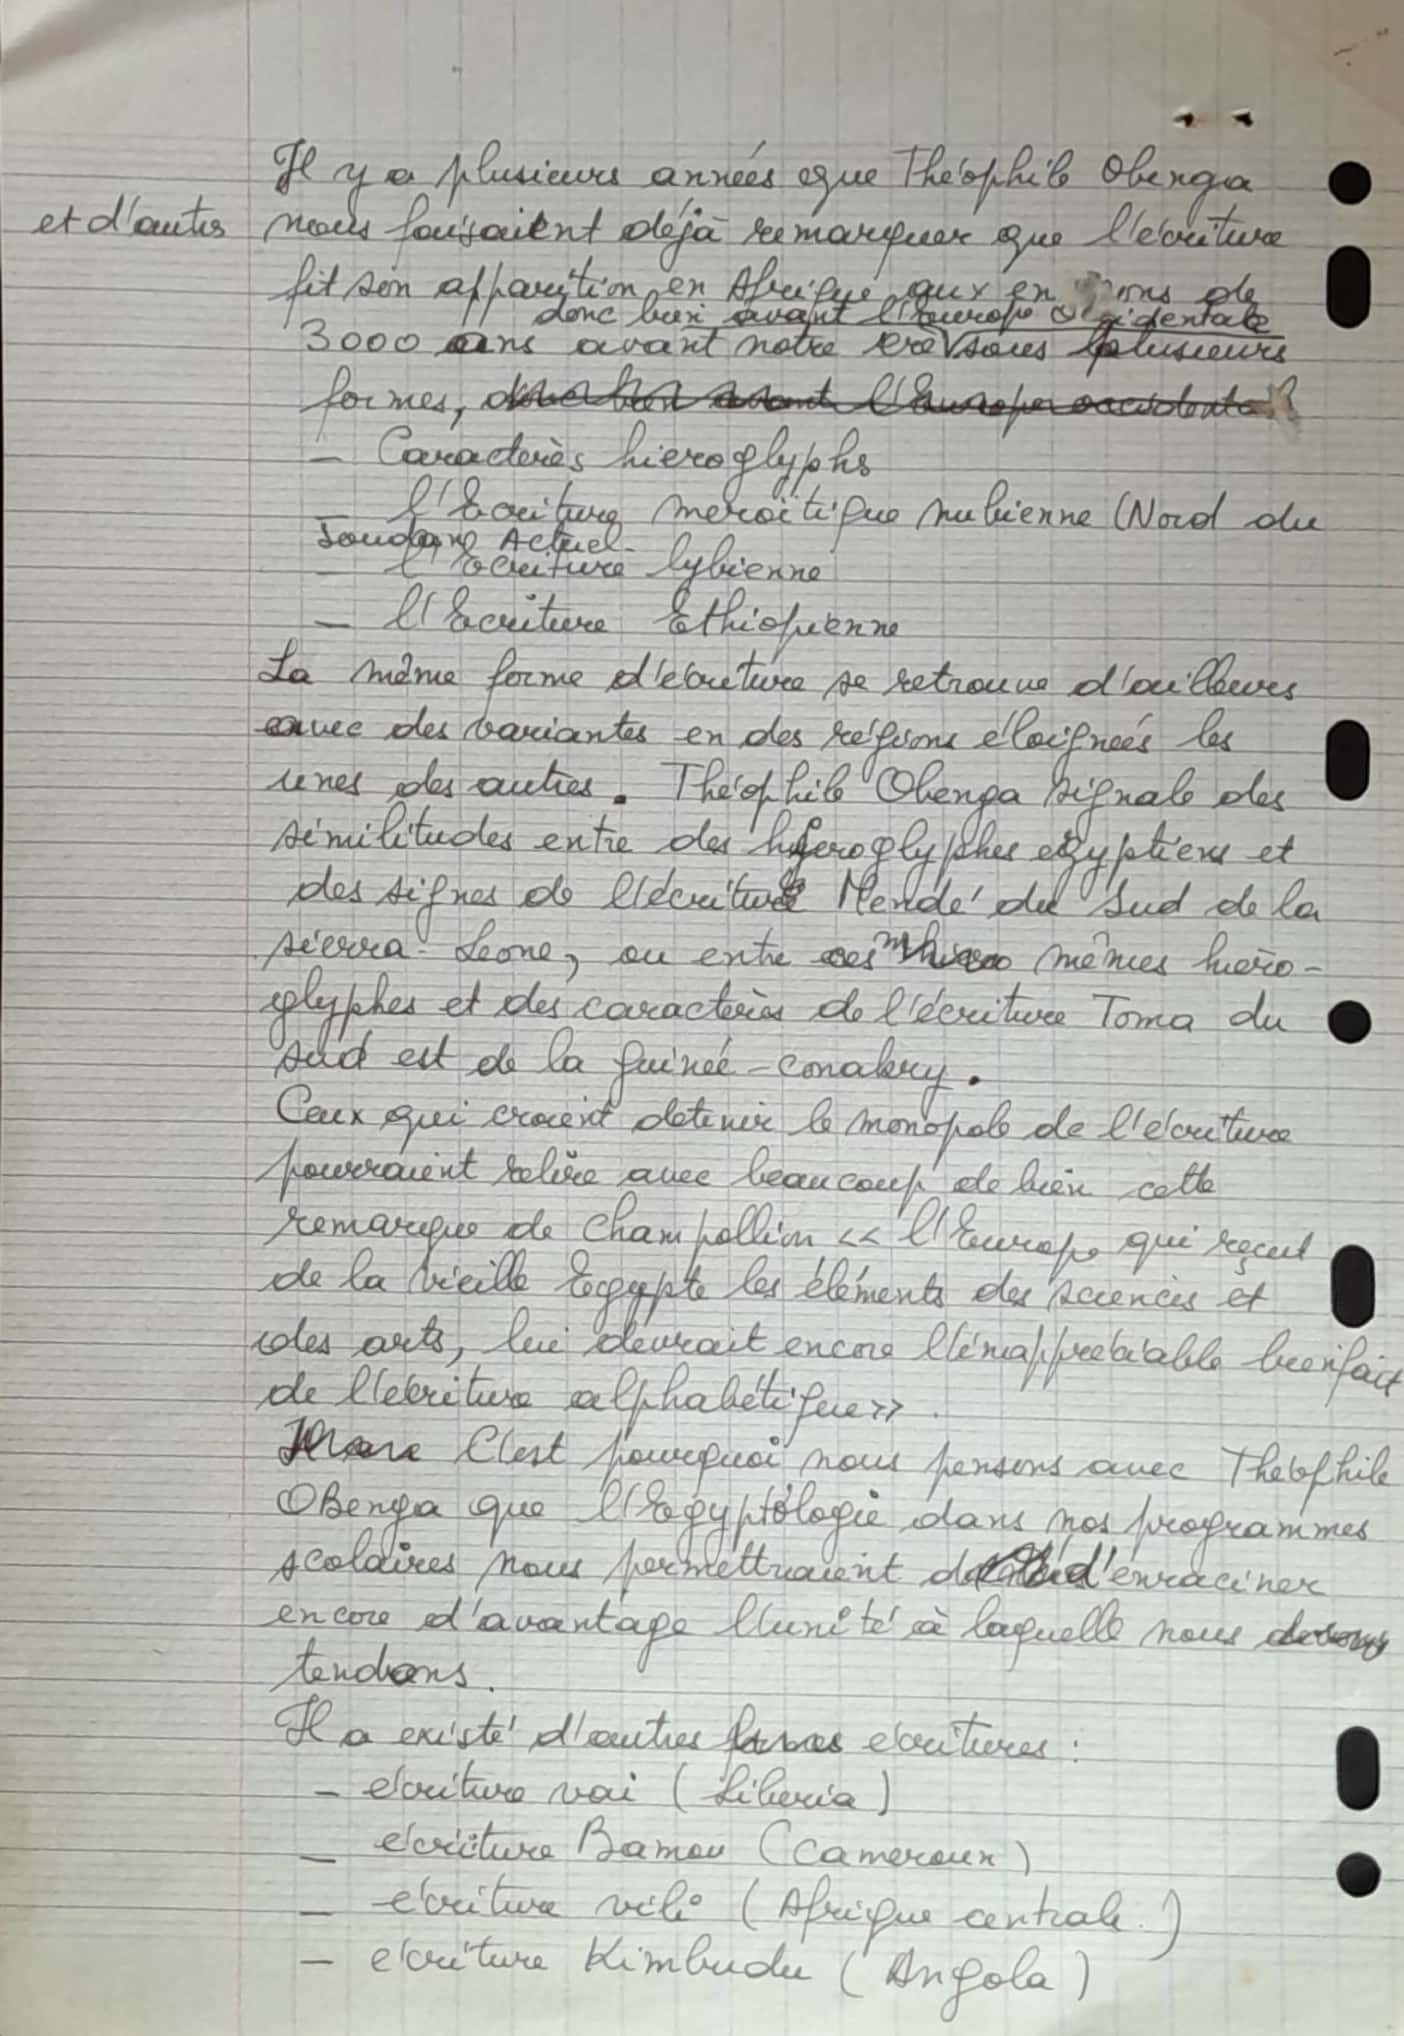 Il y a plusieurs années que Théophile Obenga
et d'autres nous faisaient déjà remarquer que l'écriture
fit son apparition en Afrique aux environs de
donc bien avant l'Europe occidentale
3000 ans avant notre ère sous plusieurs
formes, donc bien avant l'Europe occidentale
- Caractères hieroglyphs
- l'Ecriture meroïtique nubienne (Nord du
Soudane Actuel
- l'Ecriture lybienne
- l'Ecriture Ethiopienne
La même forme d'écriture se retrouve d'ailleurs
avec des variantes en des régions éloignées les
unes des autres. Théophile Obenga signale des
similitudes entre des hieroglyphes egyptiens et
des signes de l'écriture Mendé du Sud de la
sierra-Leone, ou entre ces mêmes hiéro-
glyphes et des caractères de l'écriture Toma du
sud est de la guinée-conakry.
Ceux qui croient detenir le monopole de l'écriture
pourraient relire avec beaucoup de bien cette
remarque de Champollion << l'Europe qui reçut
de la vieille Egypte les éléments des sciences et
des arts, lui devrait encore l'inappréciable bienfait
de l'écriture alphabétique >>.
C'est pourquoi nous pensons avec Théophile
OBenga que l'Egyptologie dans nos programmes
scolaires nous permettraient d'enraciner
encore d'avantage l'unité à laquelle nous
tendons.
Il a existé d'autres formes écritures :
- écriture vai (Liberia)
- écriture Bamou (Cameroun)
- écriture vili (Afrique centrale.)
- écriture Kimbudu (Angola)